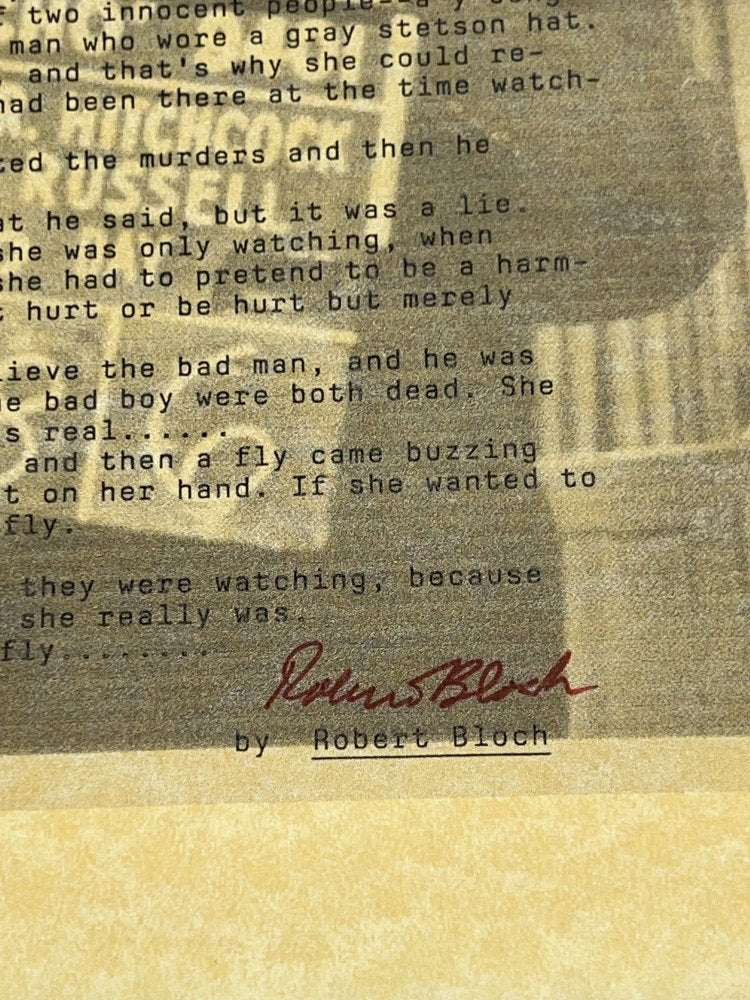 two innocent people--a y
man who wore a gray stetson hat.
and that's why she could re-
had been there at the time watch-
HITCHCOCK
ted the murders and then he
RUSSELL
at he said, but it was a lie.
she was only watching, when
she had to pretend to be a harm-
t hurt or be hurt but merely
lieve the bad man, and he was
e bad boy were both dead. She
s real......
and then a fly came buzzing
t on her hand. If she wanted to
fly.
they were watching, because
she really was.
fly........
Robert Bloch
by Robert Bloch